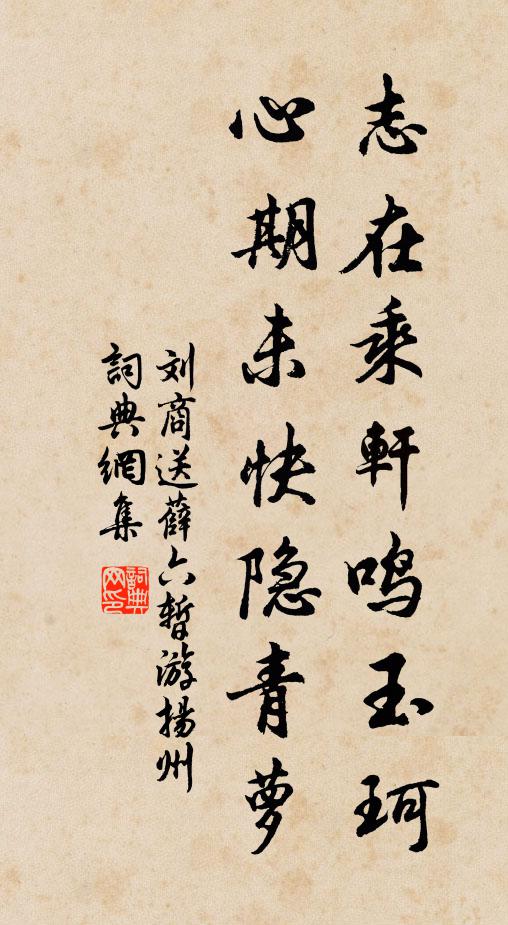 志在乘軒鸣玉珂
心期未快隐青萝
刘商送薛六暂游揚州
詞典網集
詞典网印